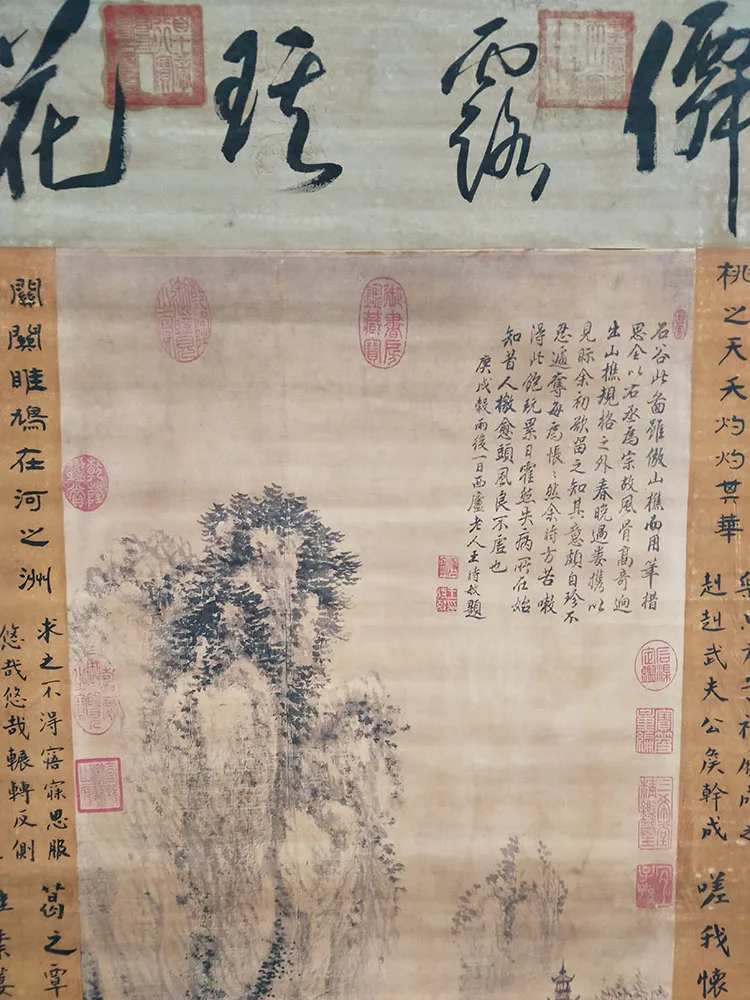 僊露琪花
桃之夭夭灼灼其華
赳赳武夫公矦幹成
嗟我懷
石谷此啚雖倣山樵而用筆措
思全以右丞爲宗故風骨高奇迥
出山樵規格之外春晚過婁携以
見眎余初欲留之知其意頗自珍不
忍遽奪每爲悵〻然余時方苦嗽
得此飽玩累日霍然失病所在始
知昔人檄愈頭風良不虛也
庚戌穀雨後一日西廬老人王時敏題
御書房鑑藏寶
石渠定鑑
寶笈重編
三希堂精鑑璽
宜子孫
關關雎鳩在河之洲
求之不得寤寐思服
悠哉悠哉輾轉反側
葛之覃